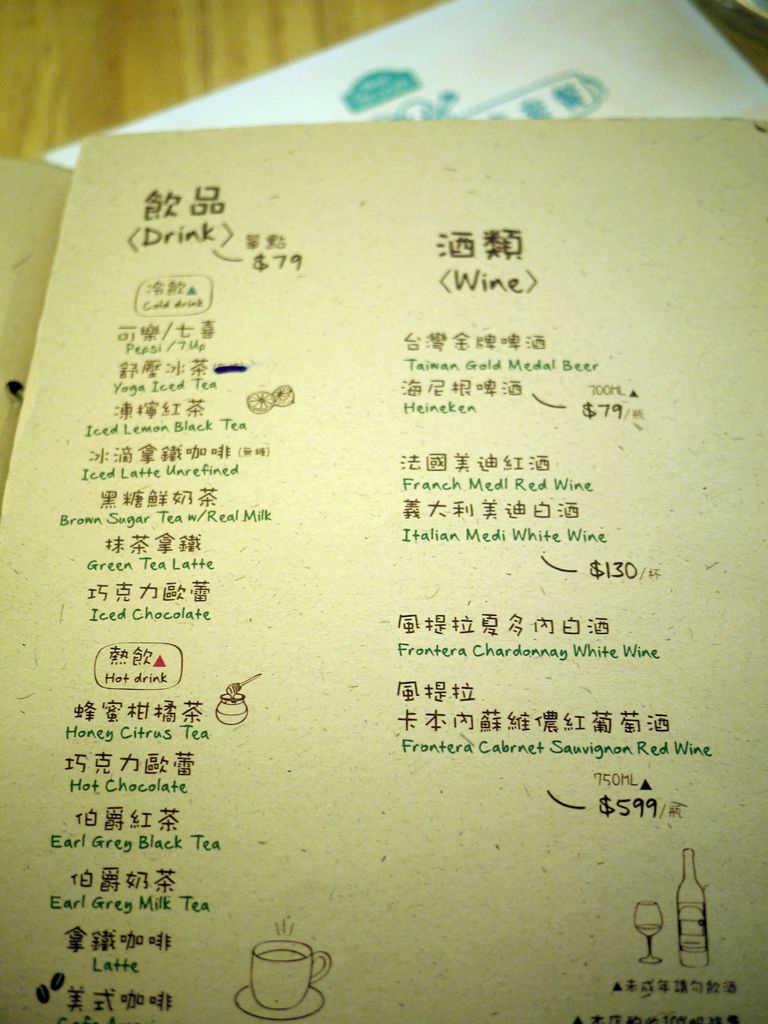 飲品
〈Drink〉 單點
$79
冷飲▲
Cold drink
可樂/七喜
Pepsi /7Up
舒壓冰茶
Yoga Iced Tea
凍檸紅茶
Iced Lemon Black Tea
冰滴拿鐵咖啡(無糖)
Iced Latte Unrefined
黑糖鮮奶茶
Brown Sugar Tea w/Real Milk
抹茶拿鐵
Green Tea Latte
巧克力歐蕾
Iced Chocolate
熱飲▲
Hot drink
蜂蜜柑橘茶
Honey Citrus Tea
巧克力歐蕾
Hot Chocolate
伯爵紅茶
Earl Grey Black Tea
伯爵奶茶
Earl Grey Milk Tea
拿鐵咖啡
Latte
美式咖啡
酒類
〈Wine〉
台灣金牌啤酒
Taiwan Gold Medal Beer
海尼根啤酒
Heineken
700ML▲
$79/瓶
法國美迪紅酒
Franch Medl Red Wine
義大利美迪白酒
Italian Medi White Wine
$130/杯
風提拉夏多內白酒
Frontera Chardonnay White Wine
風提拉
卡本內蘇維儂紅葡萄酒
Frontera Cabrnet Sauvignon Red Wine
750ML▲
$599/瓶
▲未成年請勿飲酒
▲本店酌收10%服務費